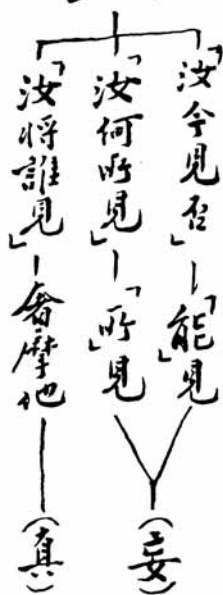 「汝今見否」—「能見」
「汝何所見」—「所見」
(妄)
「汝將誰見」—奢摩他
(真)